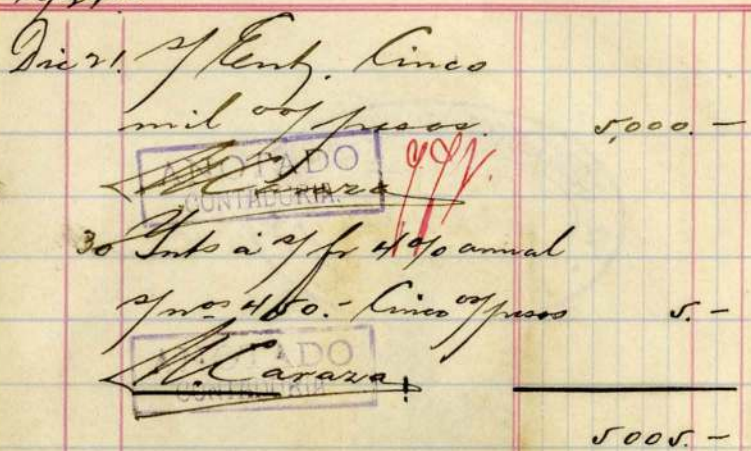 Dic 21. s/ Ent/. Cinco
mil oo/ pesos. 5,000.-
ANOTADO
CONTADURIA.
M Caraza
30 Ints a s/ fr 4% anual
s/ nos 450.- Cinco oo/ pesos 5.-
ANOTADO
CONTADURIA
M. Caraza
5005.-